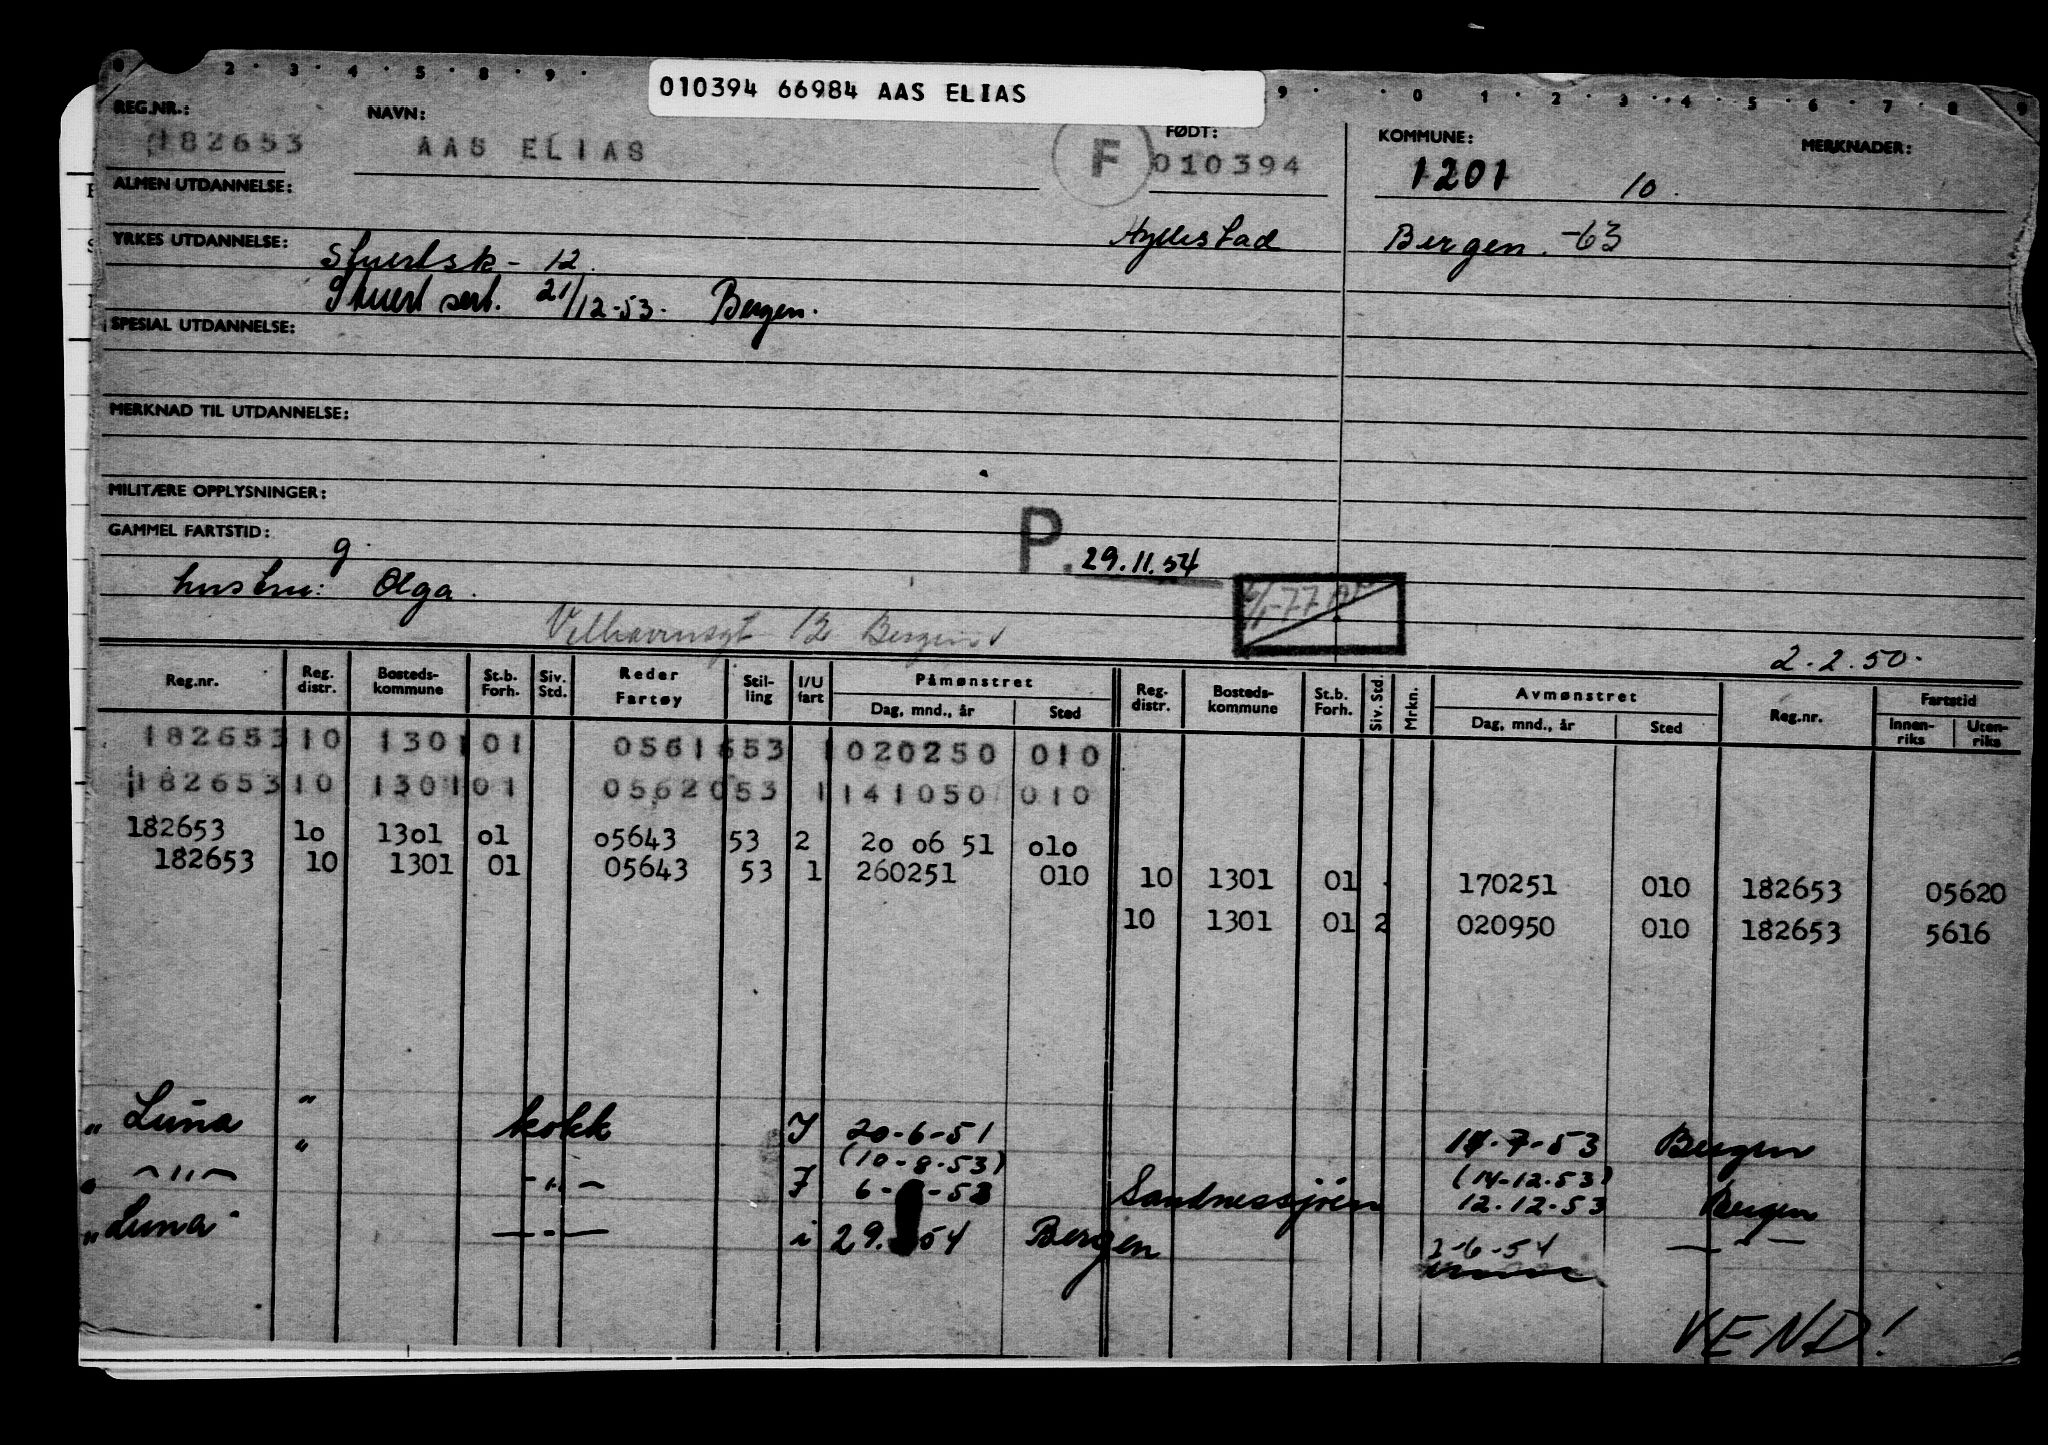 0 2 3 4 5 8 9 9 0 1 2 3 4 5 6 7 8 9
010394 66984 AAS ELIAS
REG.NR.: NAVN: FØDT: KOMMUNE: MERKNADER:
182653 AAS ELIAS F 010394 1201 10.
ALMEN UTDANNELSE:
YRKES UTDANNELSE: Stuertsk - 12. Hyllestad Bergen. -63
Stuert sert. 21/12-53. Bergen.
SPESIAL UTDANNELSE:
MERKNAD TIL UTDANNELSE:
MILITÆRE OPPLYSNINGER:
GAMMEL FARTSTID:
g.
P. 29.11.54
hustru: Olga.
-77
12 Bergen
2.2.50.
Reg.nr. Reg. distr. Bosteds-kommune St.b. Forh. Siv. Std. Reder Fartøy Stil-ling I/U fart Påmønstret Dag, mnd., år Sted Reg. distr. Bosteds-kommune St.b. Forh. Siv. Std. Mrkn. Avmønstret Dag, mnd., år Sted Reg.nr. Fartstid Innen-riks Uten-riks
182653 10 1301 01 05616 53 1 020250 010
182653 10 1301 01 05620 53 1 141050 010
182653 1o 13o1 o1 o5643 53 2 2o o6 51 o1o
182653 10 1301 01 05643 53 1 260251 010 10 1301 01 170251 010 182653 05620
10 1301 01 2 020950 010 182653 5616
" Luna " kokk I 20-6-51 14-7-53 Bergen
" (10-8-53) (14-12.53)
" -"- -"- I 6- -53 Sandnessjøen 12.12.53 Bergen
" Luna -"- i 29. 54 Bergen 2-6-54 -"-
VEND!